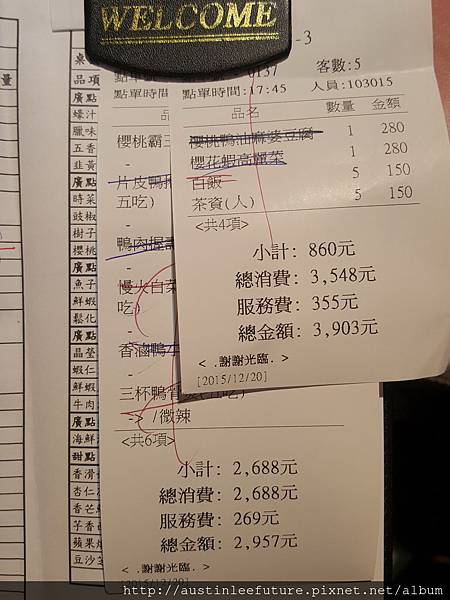 WELCOME
-3
0137
客數:5
點單時間:17:45
人員:103015
品名 數量 金額
櫻桃鴨油麻婆豆腐 1 280
櫻花蝦高麗菜 1 280
白飯 5 150
茶資(人) 5 150
<共4項>
小計: 860元
總消費: 3,548元
服務費: 355元
總金額: 3,903元
< .謝謝光臨. >
[2015/12/20]
點單時間
品
櫻桃霸王
-
片皮鴨
五吃)
-
鴨肉握壽
-
慢火白菜
吃)
-
香滷鴨
-
三杯鴨
-> /微辣
<共6項>
小計: 2,688元
總消費: 2,688元
服務費: 269元
總金額: 2,957元
< .謝謝光臨. >
[2015/12/20]
量
桌
品項
廣點
蠔汁
臘味
五香
韭黃
廣點
時菜
豉椒
樹子
櫻桃
廣點
魚子
鮮蝦
鬆化
廣點
晶瑩
蝦仁
鮮蝦
牛肉
廣點
海鮮
甜點
香滑
杏仁
香芒
芋香
蘋果
豆沙
http://austinleefuture.pixnet.net/album